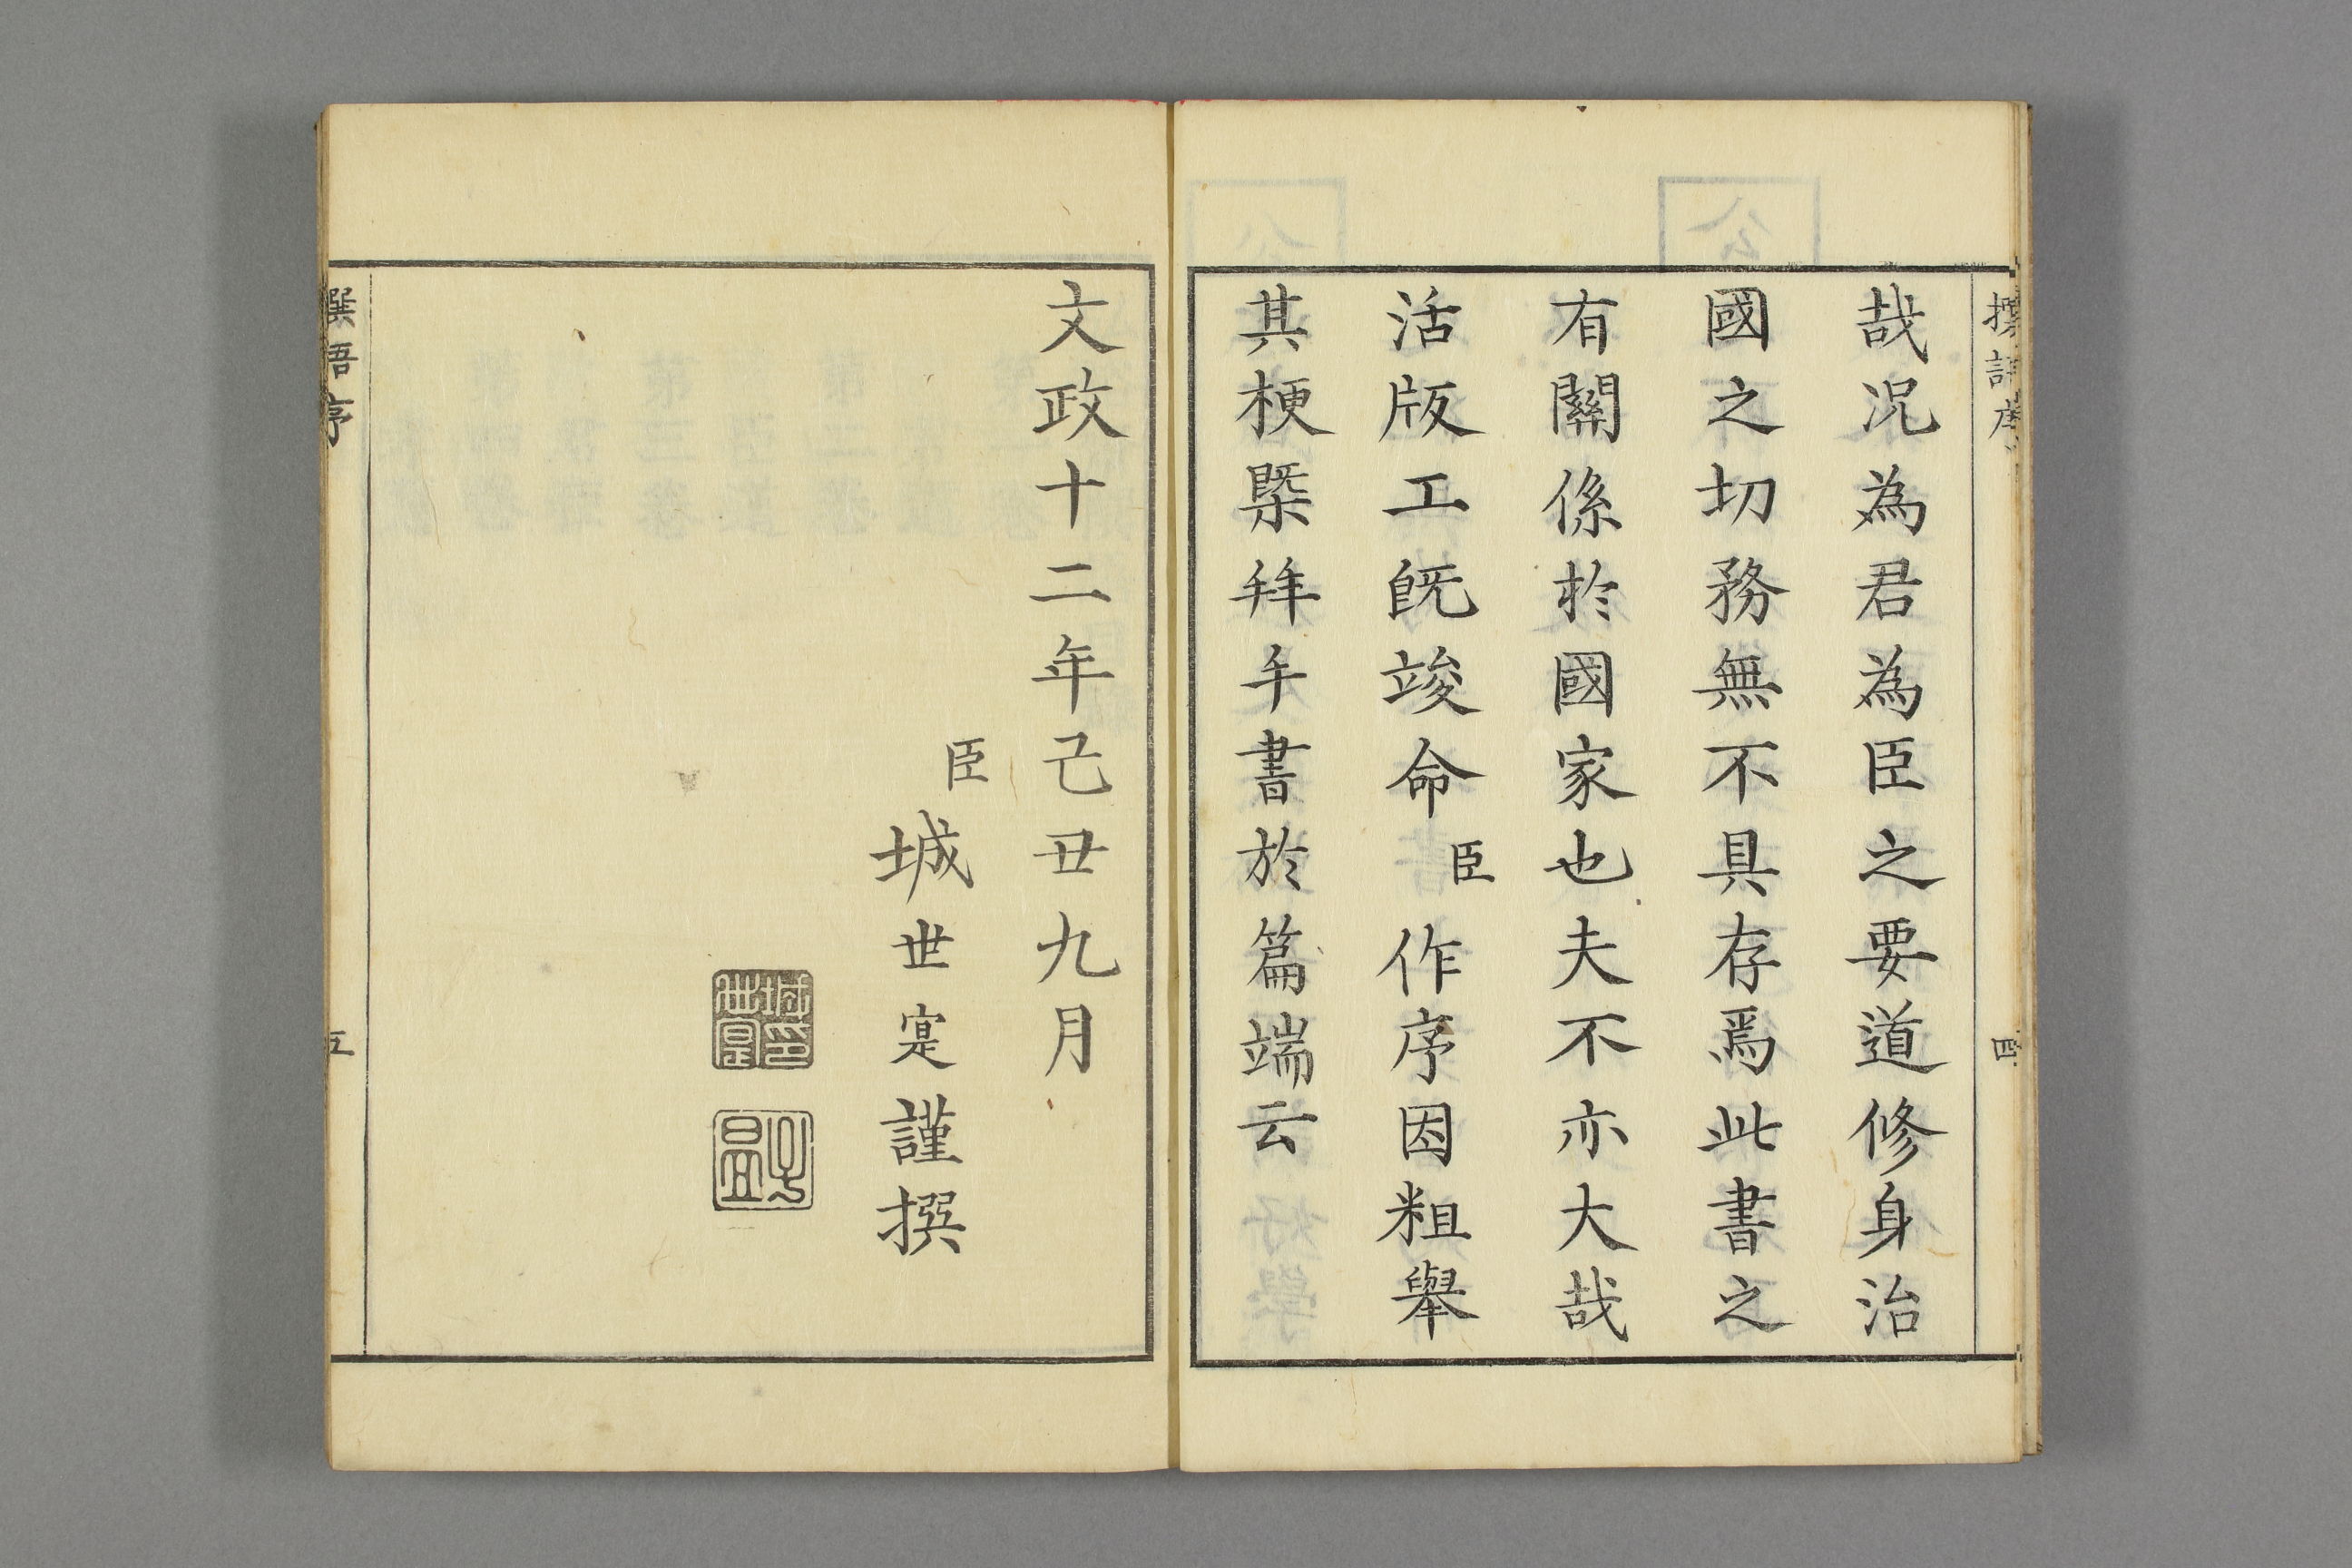 哉况為君為臣之要道修身治
國之切務無不具存焉此書之
有關係於國家也夫不亦大哉
活版工既竣命臣作序因粗舉
其梗槩拜手書於篇端云
四
文政十二年己丑九月
臣城世寔謹撰
撰語序
五